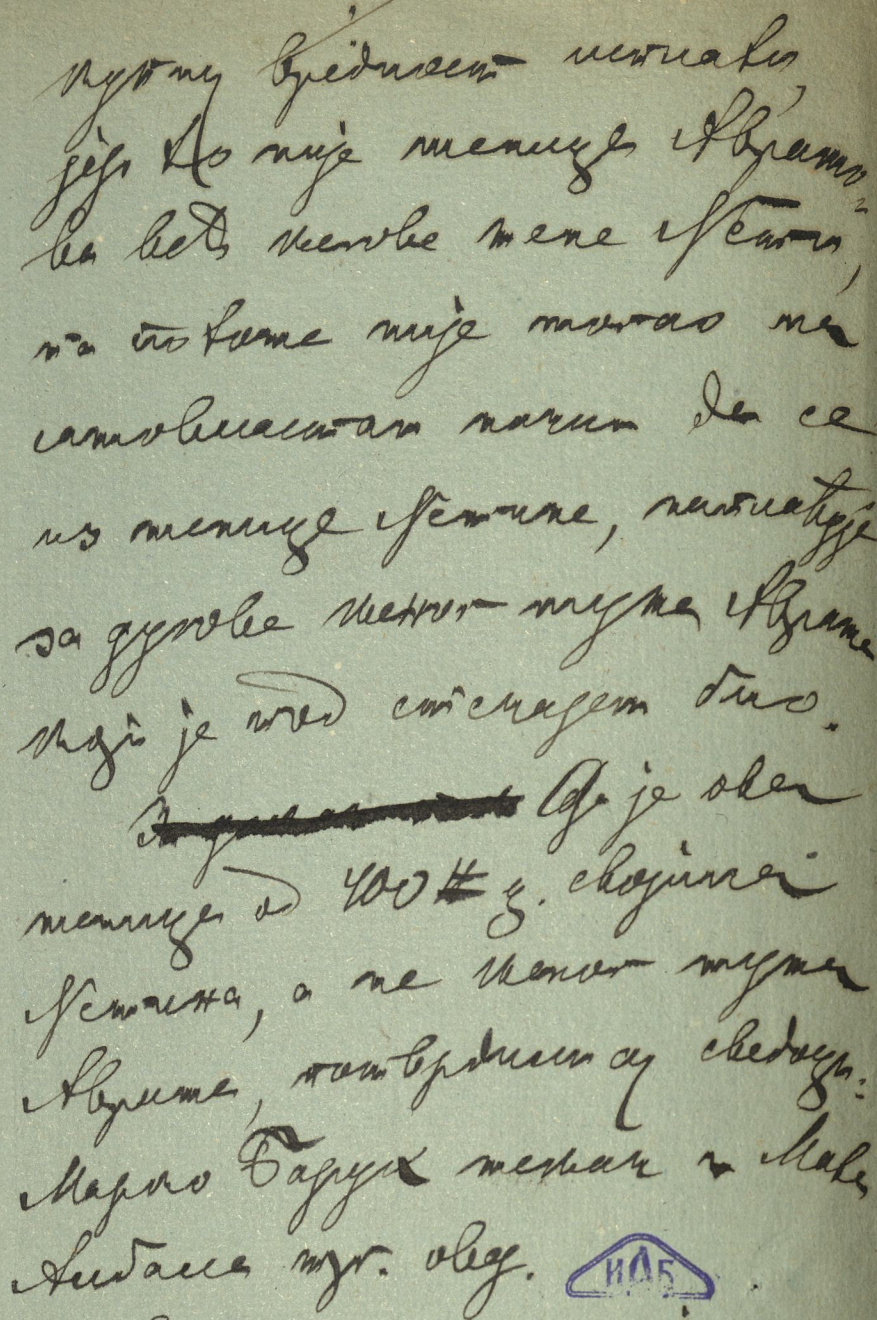 купну вредност исплати,
јер то није меница Аврамо-
ва већ његове жене Нети,
па по томе није могао на
самовластан начин да се
из менице Нетине, наплаћује
за дугове њеног мужа Аврама
који је под стецајем био.
Да је ова
меница од 400 # ц. својина
Нетина, а не њеног мужа
Аврама, потврдили су сведоци:
Марко Барух мењач и Мата
Албала трг. овд.
ИАБ